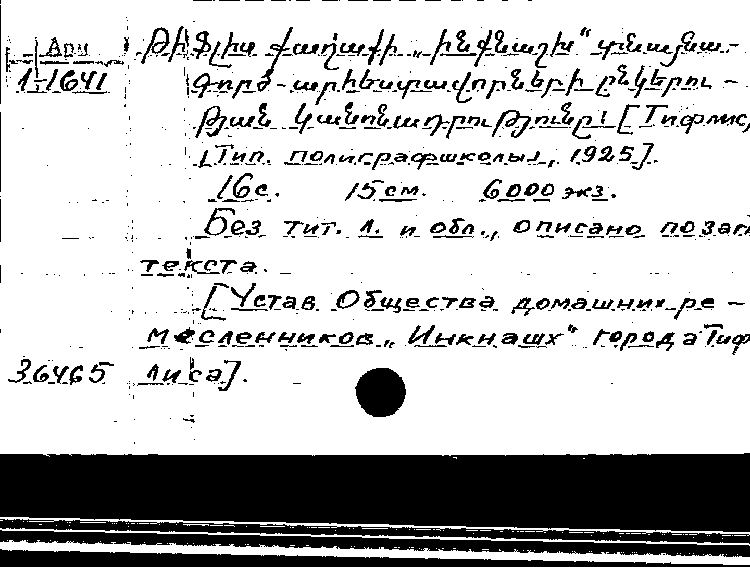 Арм Թիֆլիս քաղաքի „ինքնաշխ“ տնայնա-
1-1641 գործ-արհեստավորների ընկերու-
թյան կանոնադրությունը։ [Тифлис,
[Тип. полиграфшколы], 1925].
16 с. 15 см. 6000 экз.
Без тит. л. и обл., описано по заг
текста.
[Устав Общества домашних ре-
месленников „Инкнашх“ города Тиф
36465 лиса].